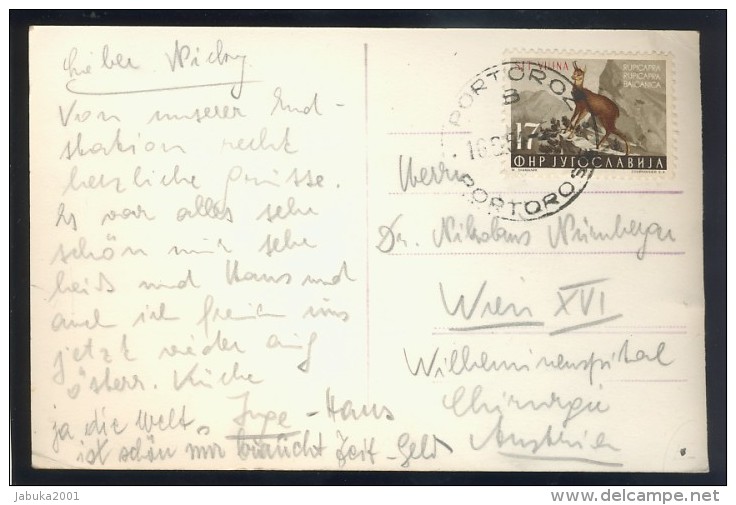 Lieber Nicky
Von unserer End-
station recht
herzliche Grüsse.
Es war alles sehr
schön nur sehr
heiß und Hans und
auch ich freuen uns
jetzt wieder auf
österr. Küche
Inge - Hans
ja die Welt
ist schön nur braucht Zeit - Geld
DIVLJAČ
RUPICAPRA
RUPICAPRA
BALCANICA
17
ФНР ЈУГОСЛАВИЈА
PORTOROŽ
B
PORTOROSE
Herrn
Dr. Nikolaus Nürnberger
Wien XVI
Wilheminenspital
Chirurgie
Austria
jabuka2001
www.delcampe.net